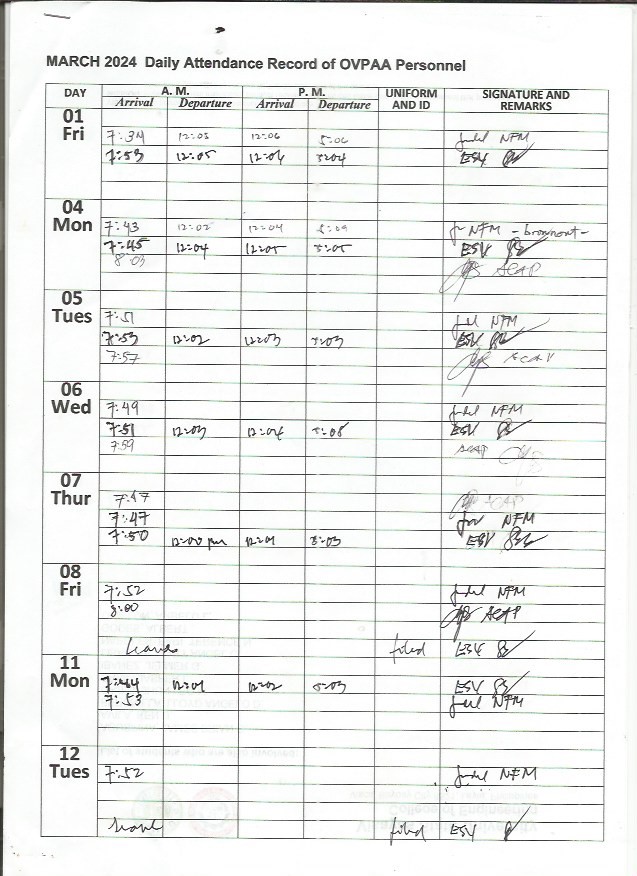 MARCH 2024 Daily Attendance Record of OVPAA Personnel
DAY A. M. P. M. UNIFORM AND ID SIGNATURE AND REMARKS
Arrival Departure Arrival Departure
01
Fri
7:34 12:03 12:06 5:06 NFM
7:53 12:05 12:06 5:04 ESV
04
Mon
7:43 12:02 12:04 5:04 NFM - brownout -
7:45 12:04 12:05 5:05 ESV
8:03 ACAP
05
Tues
7:51 NFM
7:53 12:02 12:03 5:03 ESV
7:57 ACAP
06
Wed
7:49 NFM
7:51 12:03 12:04 5:08 ESV
7:59 ACAP
07
Thur
7:47 ACAP
7:47 NFM
7:50 12:00 pm 12:01 5:03 ESV
08
Fri
7:52 NFM
8:00 ACAP
Leave filed ESV
11
Mon
7:44 12:01 12:02 5:03 ESV
7:53 NFM
12
Tues
7:52 NFM
Leave filed ESV